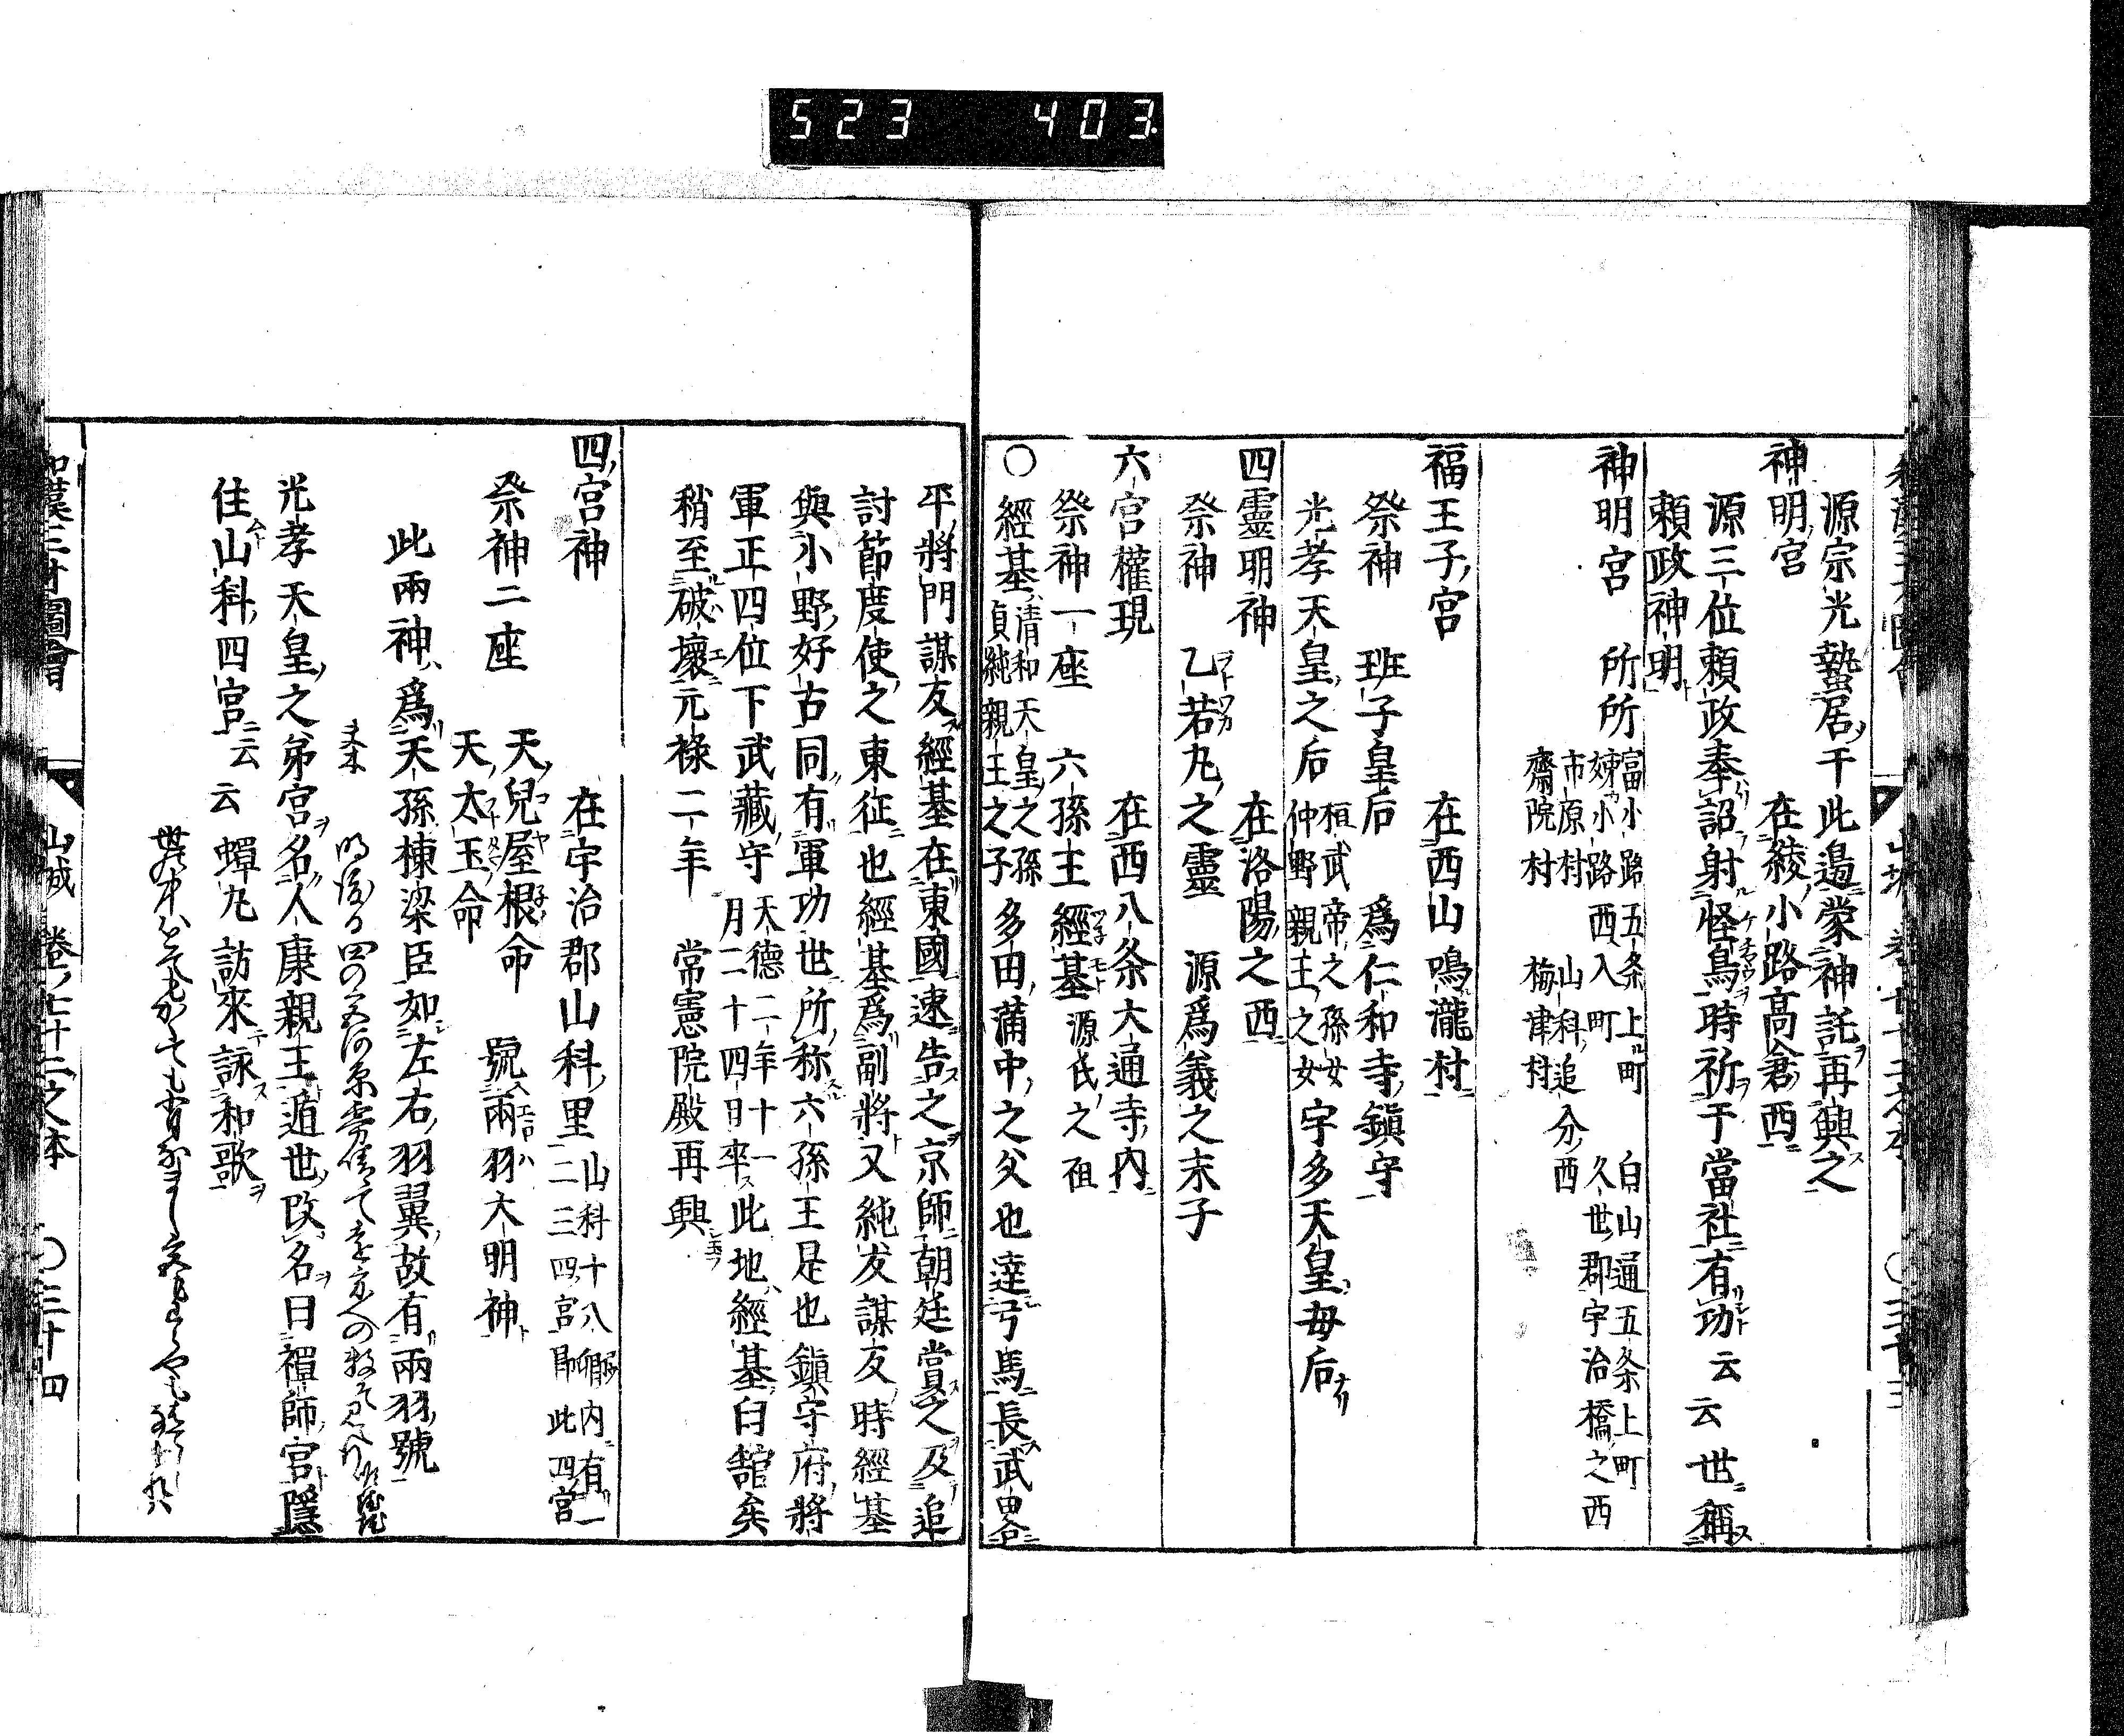 523 403
和漢三才圖會 山城 卷七十二之本 ○三十三
源宗光蟄居于此邉蒙神託再興之
神明宮 在綾小路高倉西
源三位頼政奉詔射怪鳥時祈于當社有功云云世稱
頼政神明
神明宮 所所
富小路五条上町 白山通五条上町
小路西入町 久世郡宇治橋之西
市原村 山科追分西
齋院村 梅津村
福王子宮 在西山鳴瀧村
祭神 班子皇后 爲仁和寺鎮守
光孝天皇之后 桓武帝之孫女
仲野親王之女 宇多天皇母后
四靈明神 在洛陽之西
祭神 乙若丸之靈 源爲義之末子
六宮權現 在西八条大通寺内
祭神一座 六孫王經基 源氏之祖
○經基 清和天皇之孫
貞純親王之子 多田滿中之父也達弓馬長武畧会
平將門謀反經基在東國速告之京師朝廷賞之及追
討節度使之東征也經基爲副將又純友謀反時經基
與小野好古同有軍功世所称六孫王是也鎮守府將
軍正四位下武藏守 天德二年十一
月二十四日卒 此地經基臼舘矣
稍至破壞元祿二年 常憲院殿再興
四宮神 在宇治郡山科里 山科十八郷内有一
二三四宮即此四宮
祭神二座 天兒屋根命 號兩羽大明神
天太玉命
此兩神爲天孫棟梁臣如左右羽翼故有兩羽號
夫木
光孝天皇之弟宮名人康親王遁世改名曰禪師宮隱
住山科四宮云云蟬丸訪來詠和歌
和漢三才圖會 山城 卷ノ七十二之本 ○三十四